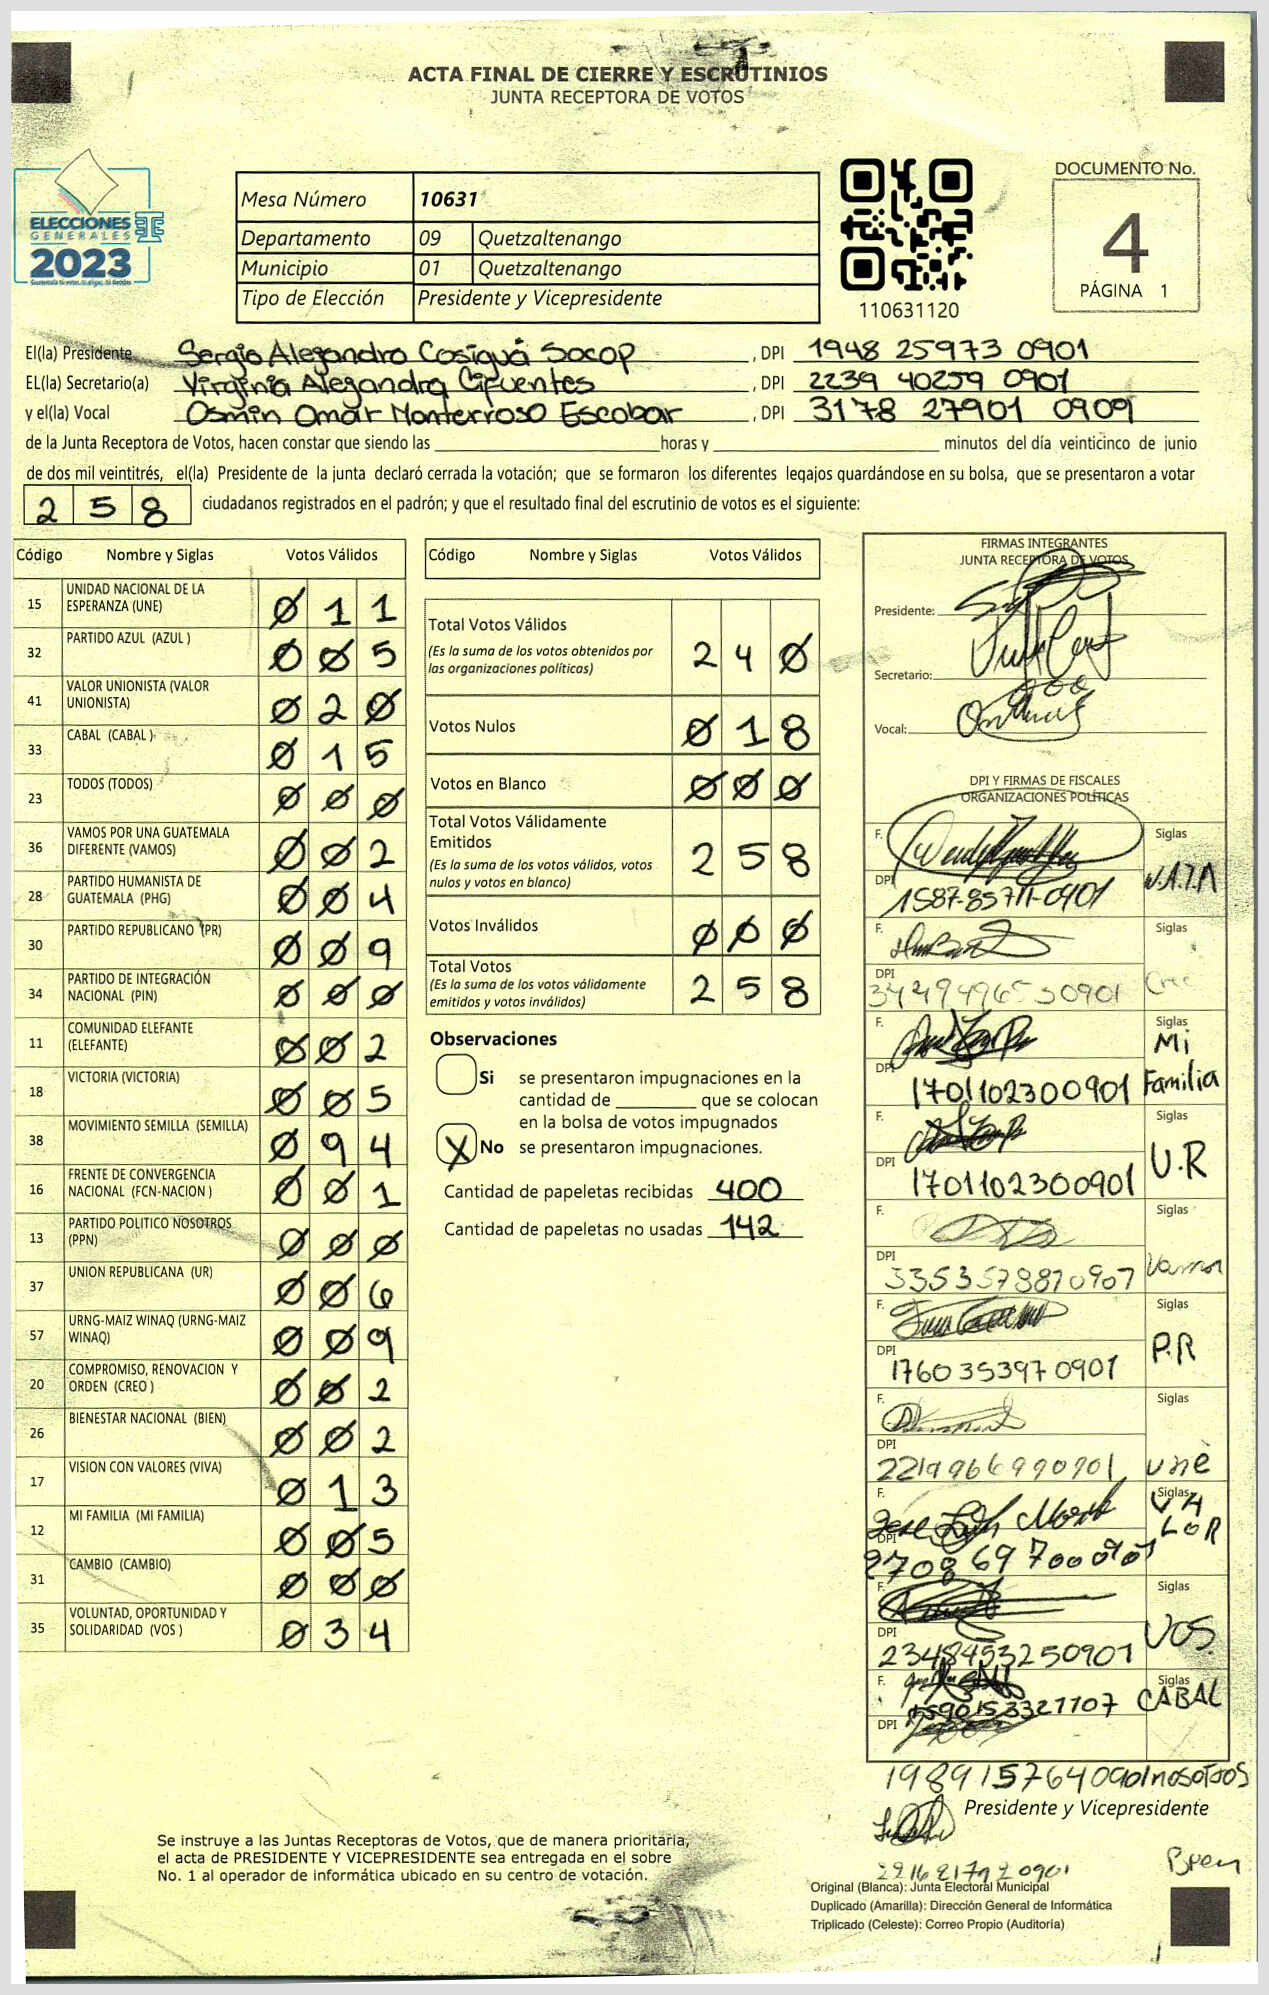 ACTA FINAL DE CIERRE Y ESCRUTINIOS
JUNTA RECEPTORA DE VOTOS
ELECCIONES
GENERALES
2023
Mesa Número 10631
Departamento 09 Quetzaltenango
Municipio 01 Quetzaltenango
Tipo de Elección Presidente y Vicepresidente
110631120
DOCUMENTO No.
4
PÁGINA 1
El(la) Presidente Sergio Alejandro Cosiguá Socop , DPI 1948 25973 0901
EL(la) Secretario(a) Virginia Alejandra Cifuentes , DPI 2239 40259 0901
y el(la) Vocal Osmin Omar Monterroso Escobar , DPI 3178 27901 0909
de la Junta Receptora de Votos, hacen constar que siendo las horas y minutos del día veinticinco de junio
de dos mil veintitrés, el(la) Presidente de la junta declaró cerrada la votación; que se formaron los diferentes legajos quardándose en su bolsa, que se presentaron a votar
258 ciudadanos registrados en el padrón; y que el resultado final del escrutinio de votos es el siguiente:
Código Nombre y Siglas Votos Válidos
15 UNIDAD NACIONAL DE LA ESPERANZA (UNE) 011
32 PARTIDO AZUL (AZUL ) 005
41 VALOR UNIONISTA (VALOR UNIONISTA) 020
33 CABAL (CABAL ) 015
23 TODOS (TODOS) 000
36 VAMOS POR UNA GUATEMALA DIFERENTE (VAMOS) 002
28 PARTIDO HUMANISTA DE GUATEMALA (PHG) 004
30 PARTIDO REPUBLICANO (PR) 009
34 PARTIDO DE INTEGRACIÓN NACIONAL (PIN) 000
11 COMUNIDAD ELEFANTE (ELEFANTE) 002
18 VICTORIA (VICTORIA) 005
38 MOVIMIENTO SEMILLA (SEMILLA) 094
16 FRENTE DE CONVERGENCIA NACIONAL (FCN-NACION ) 001
13 PARTIDO POLITICO NOSOTROS (PPN) 000
37 UNION REPUBLICANA (UR) 006
57 URNG-MAIZ WINAQ (URNG-MAIZ WINAQ) 009
20 COMPROMISO, RENOVACION Y ORDEN (CREO ) 002
26 BIENESTAR NACIONAL (BIEN) 002
17 VISION CON VALORES (VIVA) 013
12 MI FAMILIA (MI FAMILIA) 005
31 CAMBIO (CAMBIO) 000
35 VOLUNTAD, OPORTUNIDAD Y SOLIDARIDAD (VOS ) 034
Código Nombre y Siglas Votos Válidos
Total Votos Válidos 240
(Es la suma de los votos obtenidos por
las organizaciones políticas)
Votos Nulos 018
Votos en Blanco 000
Total Votos Válidamente
Emitidos 258
(Es la suma de los votos válidos, votos
nulos y votos en blanco)
Votos Inválidos 000
Total Votos 258
(Es la suma de los votos válidamente
emitidos y votos inválidos)
Observaciones
Si se presentaron impugnaciones en la
cantidad de que se colocan
en la bolsa de votos impugnados
X No se presentaron impugnaciones.
Cantidad de papeletas recibidas 400
Cantidad de papeletas no usadas 142
FIRMAS INTEGRANTES
JUNTA RECEPTORA DE VOTOS
Presidente:
Secretario:
Vocal:
DPI Y FIRMAS DE FISCALES
ORGANIZACIONES POLÍTICAS
F. Siglas
DPI
F. Siglas
DPI
F. Siglas Mi Familia
DPI 1701102300901
F. Siglas U.R
DPI 1701102300901
F. Siglas Vamos
DPI 3353578870907
F. Siglas P.R
DPI 1760353970901
F. Siglas une
DPI 2219966990901
F. Siglas VALOR
DPI
F. Siglas VOS.
DPI 2348453250901
F. Siglas CABAL
DPI
1989157640901 nosotros
Presidente y Vicepresidente
Se instruye a las Juntas Receptoras de Votos, que de manera prioritaria,
el acta de PRESIDENTE Y VICEPRESIDENTE sea entregada en el sobre
No. 1 al operador de informática ubicado en su centro de votación.
Original (Blanca): Junta Electoral Municipal
Duplicado (Amarilla): Dirección General de Informática
Triplicado (Celeste): Correo Propio (Auditoría)